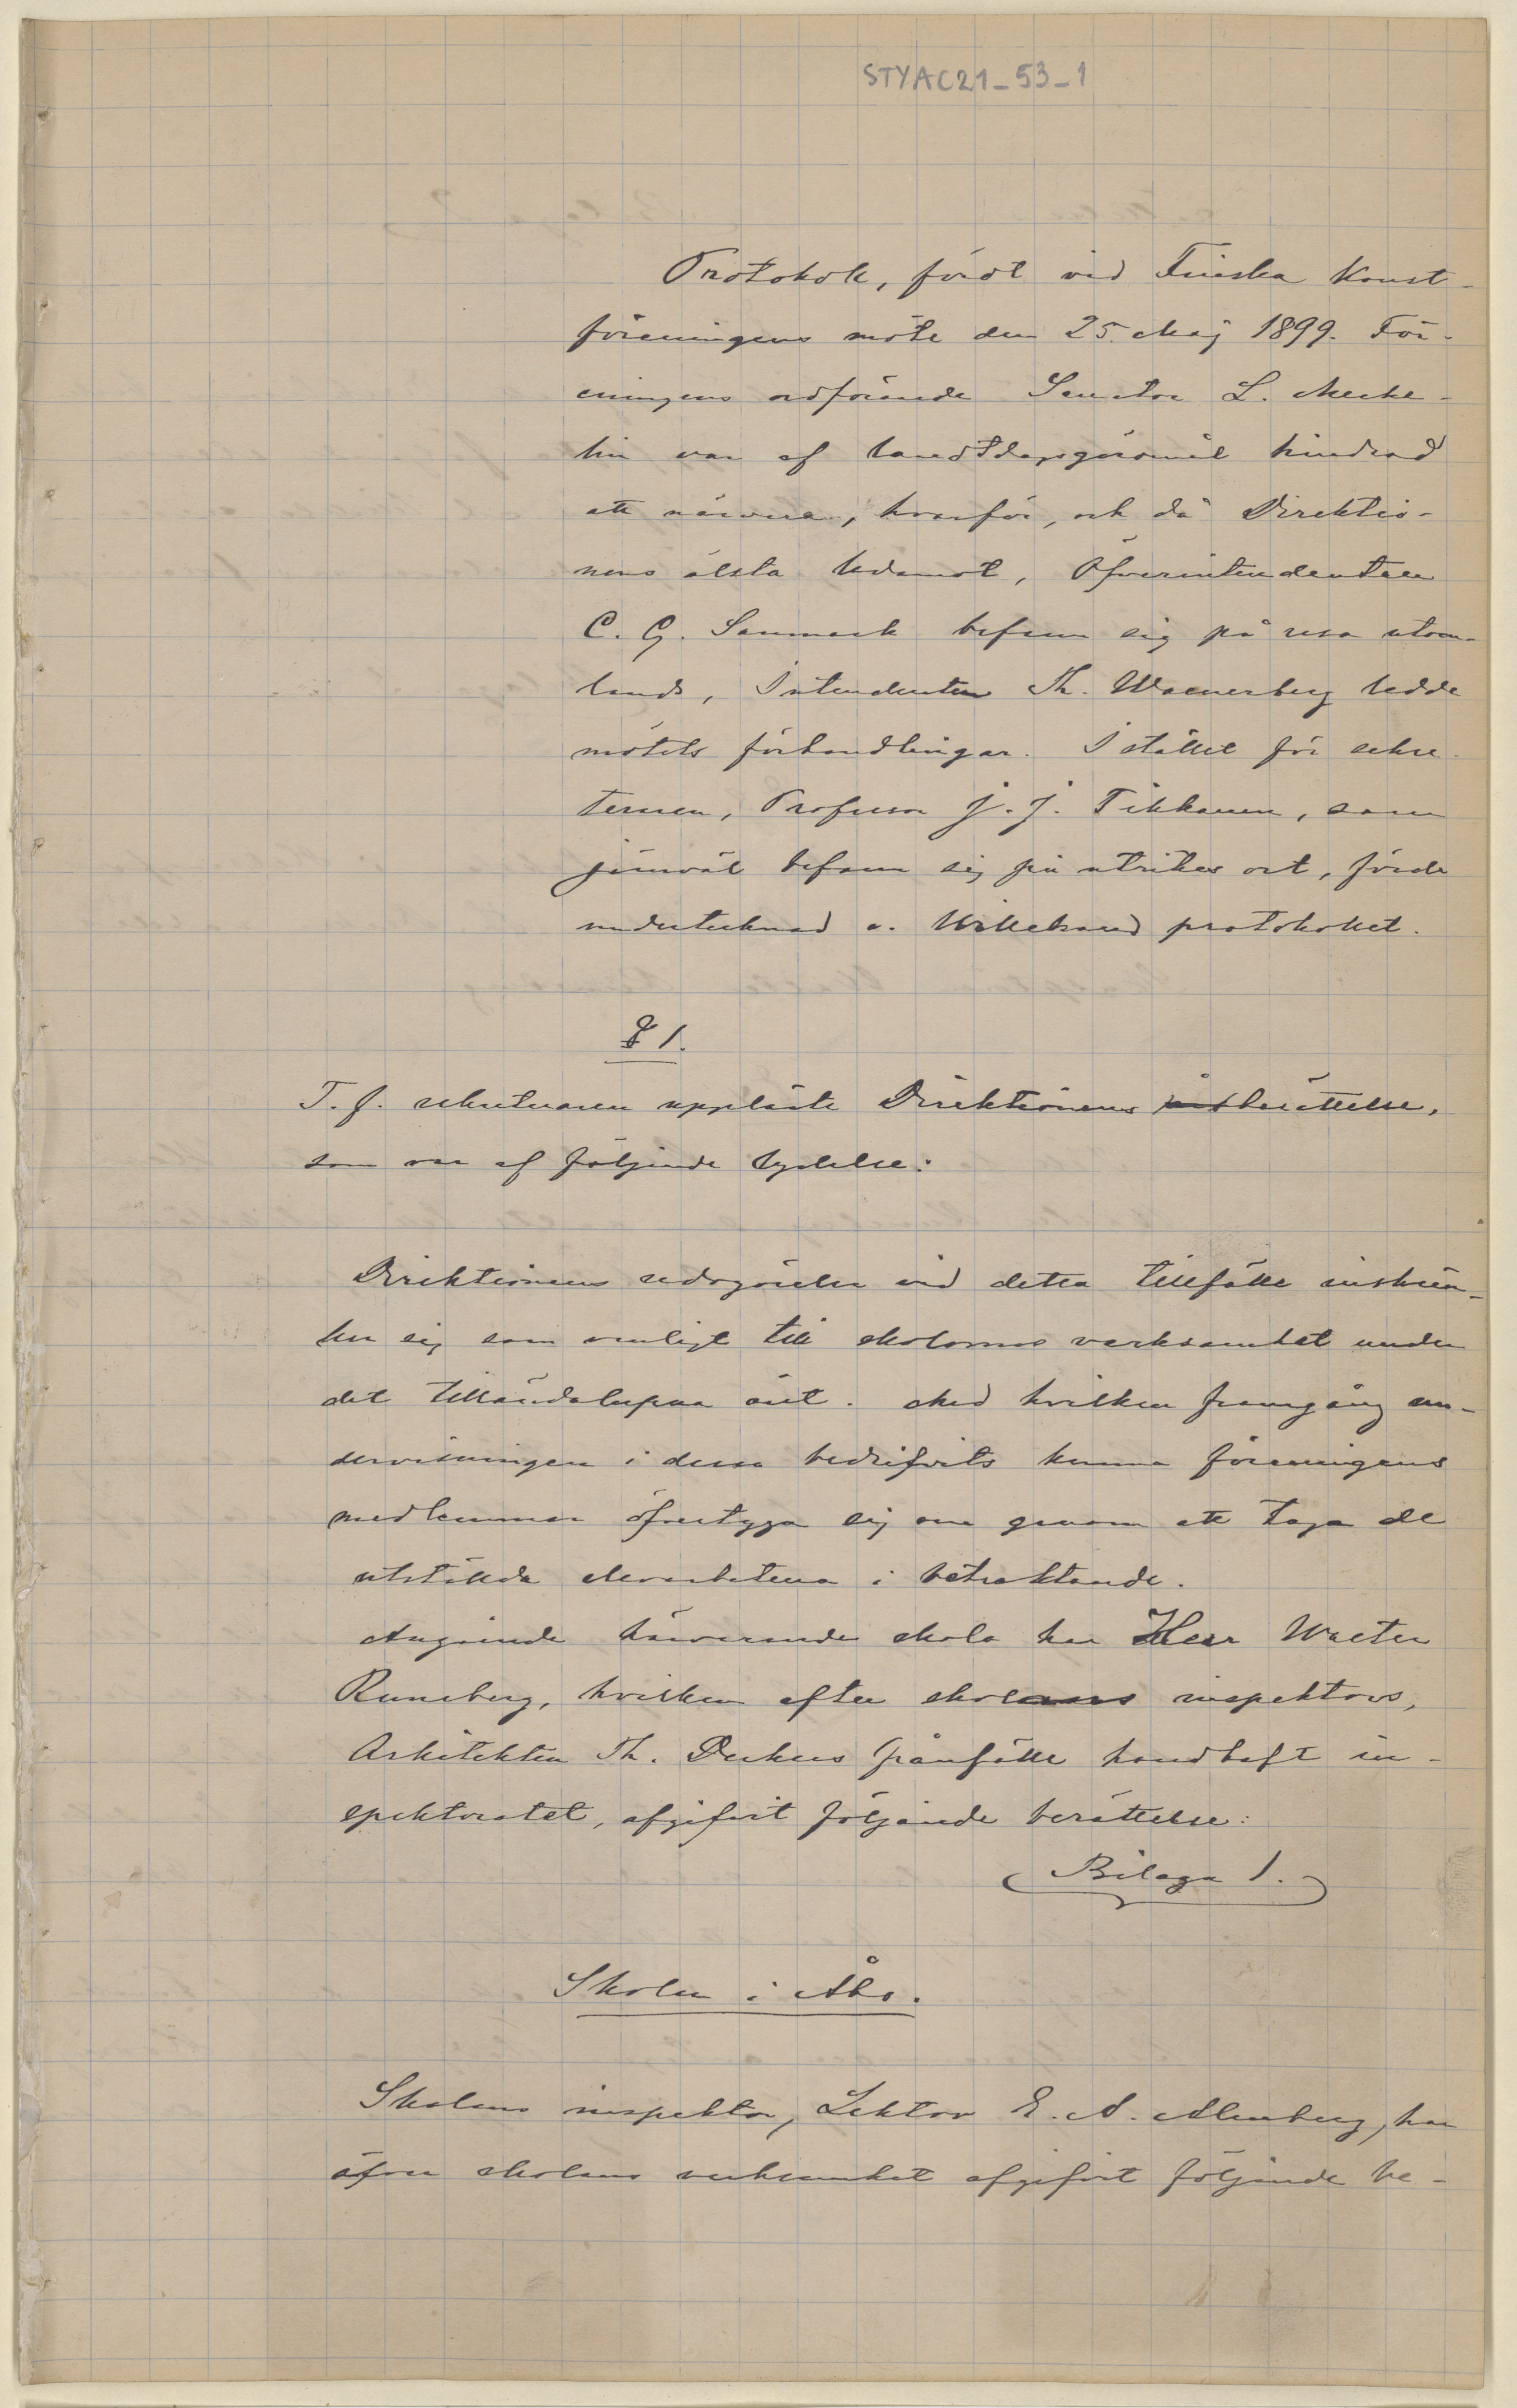 STYAC21_53_1
Protokoll, fördt vid Finska Konst-
föreningens möte den 25. Maj 1899. För-
eningens ordförande Senator L. Meche-
lin var af landtdagsgöromål hindrad
att närvara, hvarför, och då Direktio-
nens älsta ledamot, Öfverintendenten
C. G. Sanmark befann sig på resa utom-
lands, Intendenten Th. Waenerberg ledde
mötets förhandlingar. I stället för sekre-
teraren, Professor J. J. Tikkanen, som
jämväl befann sig på utrikes ort, förde
undertecknad v. Willebrand protokollet.
§ 1.
T. f. sekreteraren uppläste Direktionens årsberättelse,
som var af följande lydelse:
Direktionens redogörelse vid detta tillfälle inskrän-
ker sig som vanligt till skolornas verksamhet under
det tilländalupna året. Med hvilken framgång un-
dervisningen i dessa bedrifvits kunna föreningens
medlemmar öfvertyga sig om genom att taga de
utstälda elevarbetena i betraktande.
Angående härvarande skola har Herr Walter
Runeberg, hvilken efter skolans inspektors,
Arkitekten Th. Deckers frånfälle handhaft in-
spektoratet, afgifvit följande berättelse:
(Bilaga 1.)
Skolan i Åbo.
Skolans inspektor, Lektor E. A. Alenberg, har
öfver skolans verksamhet afgifvit följande be-